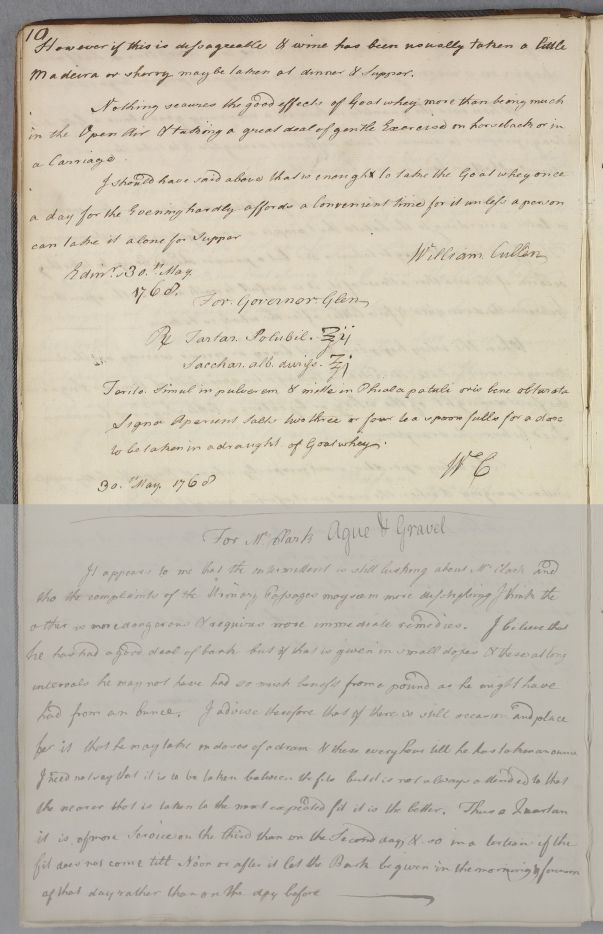 10
However if this is dissagreeable & wine has been usually taken a little
Madeira or sherry may be taken at dinner & Supper.
Nothing secures the good effects of Goat whey more than being much
in the Open Air & taking a great deal of gentle Exercise on horseback or in
a Carriage.
I should have said above that is enough to take the Goat whey once
a day for the Evening hardly affords a Convenient time for it unless a person
can take it alone for Supper
William Cullen
Edinr. 30.th May
1768.
For Governor Glen
℞ Tartar. Solubil. ℥ij
Sacchar. alb. duriss. ℥j
Terito. Simul in pulverem & mitte in Phiala patuli oris bene obturata
Signa Aperient Salts two three or four tea spoon fulls for a dose
to be taken in a draught of Goat whey.
30.th May 1768
W C
For Mr. Clark Ague & Gravel
It appears to me that the intermittent is still lurking about Mr. Clark and
tho the complaints of the Urinary Passages may seem more distressing I think the
other is more dangerous & requires more immediate remedies. I believe that
he has had a good deal of bark but if that is given in small doses & these at long
intervals he may not have had so much benefit from a pound as he might have
had from an ounce. I advise therefore that if there is still occasion and place
for it that he may take in doses of a dram & these every hour till he has taken an ounce
I need not say that it is to be taken between the fits but it is not always attended to that
the nearer that is taken to the most expected fit it is the better. Thus a Quartan
it is of more Service on the third than on the Second day, & so in a tertian if the
fit does not come till Noon or after it let the Bark be given in the morning & forenoon
of that day rather than on the day before